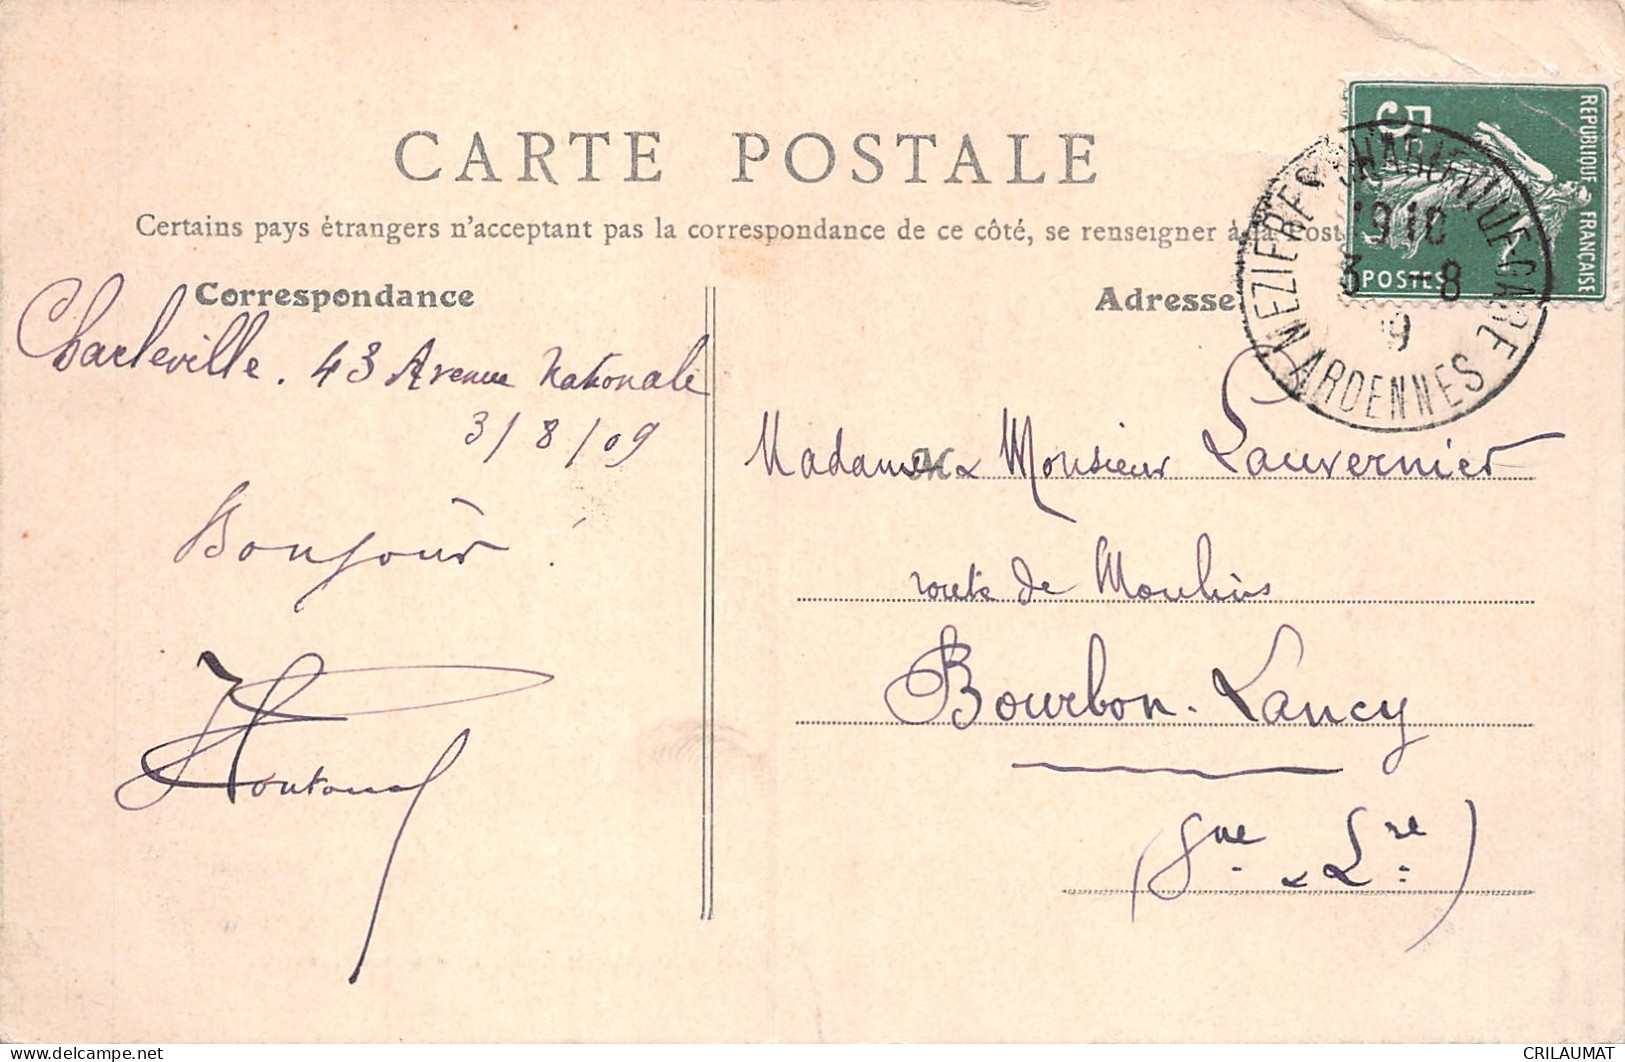 CARTE POSTALE
Certains pays étrangers n'acceptent pas la correspondance de ce côté, se renseigner à la Post
Correspondance
Adresse
5
REPUBLIQUE FRANÇAISE
POSTES
MEZIERES CHARLEVILLE GARE
19 10
3 - 8
9
ARDENNES
Charleville. 43 Avenue Nationale
3/8/09
Bonjour !
Madame & Monsieur Lauvernier
route de Moulins
Bourbon-Lancy
(Sne & Lre)
delcampe.net
CRILAUMAT